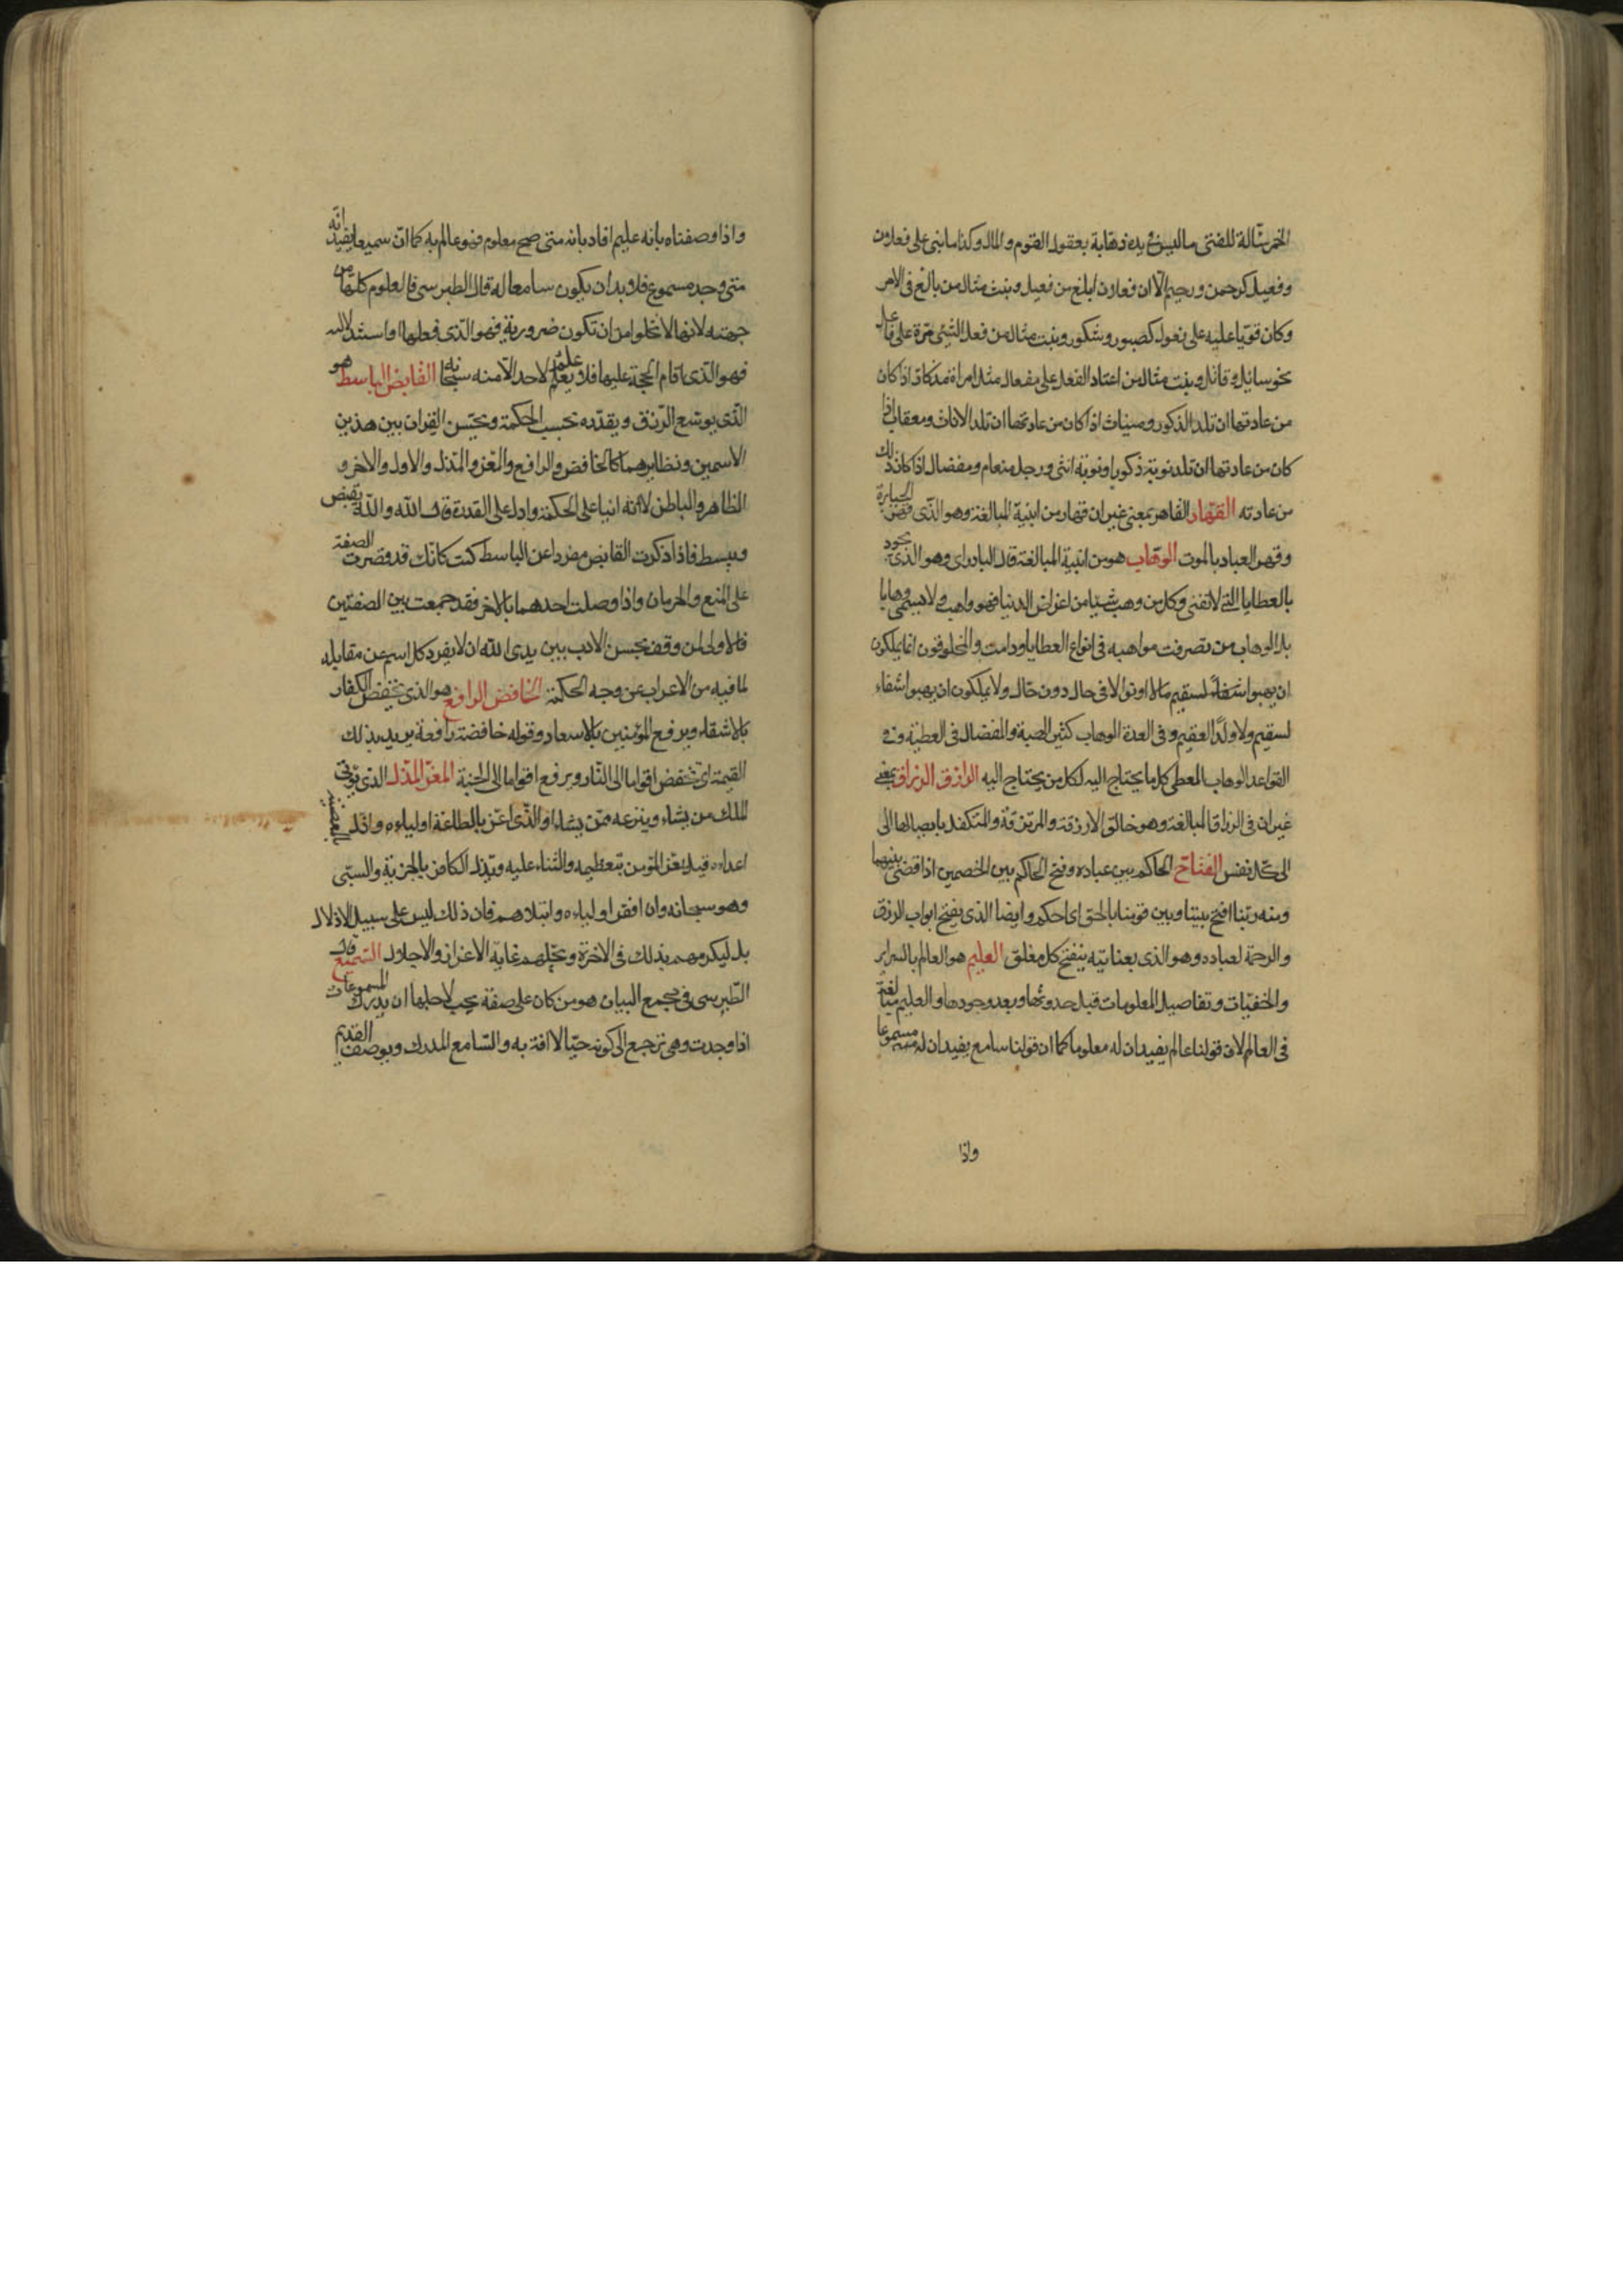 الخمر سئالة للفتى ما ليس فى يده ذهابة بعقول القوم والمال وكذا ما بنى على فعلان
وفعيل كرحمن ورحيم الا ان فعلان ابلغ من فعيل وبنت مثال من بالغ فى الامر
وكان قويا عليه على فعول كصبور وشكور وبنت مثال من فعل الشئ مرة على فاعل
نحو سائل وقاتل وبنت مثال من اعتاد الفعل على مفعال مثل امراة مذكار اذا كان
من عادتها ان تلد الذكور ومينات اذا كان من عادتها ان تلد الاناث ومعقاب اذا
كان من عادتها ان تلد نوبة ذكورا ونوبة انثى ورجل منعام ومفضال اذا كان ذلك
من عادته القهار القاهر بمعنى غير ان قهار من ابنية المبالغة وهو الذى قهر الجبابرة
وقهر العباد بالموت الوهاب هو من ابنية المبالغة قال البادراى وهو الذى يجود
بالعطايا التى لا تفنى وكل من وهب شيئا من اعراض الدنيا فهو واهب ولا يسمى وهابا
بل الوهاب من تصرفت مواهبه فى انواع العطايا ودامت والمخلوقون انما يملكون
ان يهبوا مالا او نوالا فى حال دون حال ولا يملكون ان يهبوا شفاء
لسقيم ولا ولدا لعقيم وفى العدة الوهاب كثير الهبة والمفضال فى العطية وفى
القواعد الوهاب المعطى كل ما يحتاج اليه لكل من يحتاج اليه الرازق الرزاق بمعنى
غير ان فى الرزاق المبالغة وهو خالق الارزقة والمرتزقة والمتكفل بايصالها الى
الى كل نفس الفتاح الحاكم بين عباده وفتح الحاكم بين الخصمين اذا قضى بينهما
ومنه ربنا افتح بيننا وبين قومنا بالحق اى احكم وايضا الذى يفتح ابواب الرزق
والرحمة لعباده وهو الذى بعنايته ينفتح كل مغلق العليم هو العالم بالسرائر
والخفيات وتفاصيل المعلومات قبل حدوثها وبعد وجودها والعليم مبالغة
فى العالم لان قولنا عالم يفيد ان له معلوما كما ان قولنا سامع يفيد ان له مسموعا
واذا
واذا وصفناه بانه عليم افاد بانه متى صح معلوم فهو عالم به كما ان سميعا يفيد انه
متى وجد مسموع فلا بد ان يكون سامعا له قال الطبرسى فالعلوم كلها من
جهته لانها لا تخلو امن ان تكون ضرورية فهو الذى فعلها او استدلالية
فهو الذى اقام الحجة عليها فلا علم لاحد الا منه سبحانه القابض الباسط هو
الذى يوسع الرزق ويقدره بحسب الحكمة ويحسن القران بين هذين
الاسمين ونظايرهما كالخافض والرافع والمعز والمذل والاول والاخر و
الظاهر والباطن لانه انبا على الحكمة وادل على القدرة قال الله والله يقبض
ويبسط فاذا ذكرت القابض مفردا عن الباسط كنت كانك قد قصرت الصفة
على المنع والحرمان واذا وصلت احدهما بالاخر فقد جمعت بين الصفتين
فالاولى لمن وقف بحسن الادب بين يدى الله ان لا يفرد كل اسم عن مقابله
لما فيه من الاعراب عن وجه الحكمة الخافض الرافع هو الذى يخفض الكفار
بالاشقاء ويرفع المؤمنين بالاسعاد وقوله خافضة رافعة يريد بذلك
القيمة اى تخفض اقواما الى النار وترفع اقواما الى الجنة المعز المذل الذى يؤتى
الملك من يشاء وينزعه ممن يشاء او الذى اعز بالطاعة اولياءه واذل بالمعصية
اعداءه قيل يعز المؤمن بتعظيمه والثناء عليه ويذل الكافر بالجزية والسبى
وهو سبحانه وان افقر اولياءه وابتلاهم فان ذلك ليس على سبيل الاذلال
بل ليكرمهم بذلك فى الاخرة ويحلهم غاية الاعزاز والاجلال السميع قال
الطبرسى فى مجمع البيان هو من كان على صفة يجب لاجلها ان يدرك المسموعات
اذا وجدت وهى ترجع الى كونه حيا لا افة به والسامع المدرك ويوصف القديم